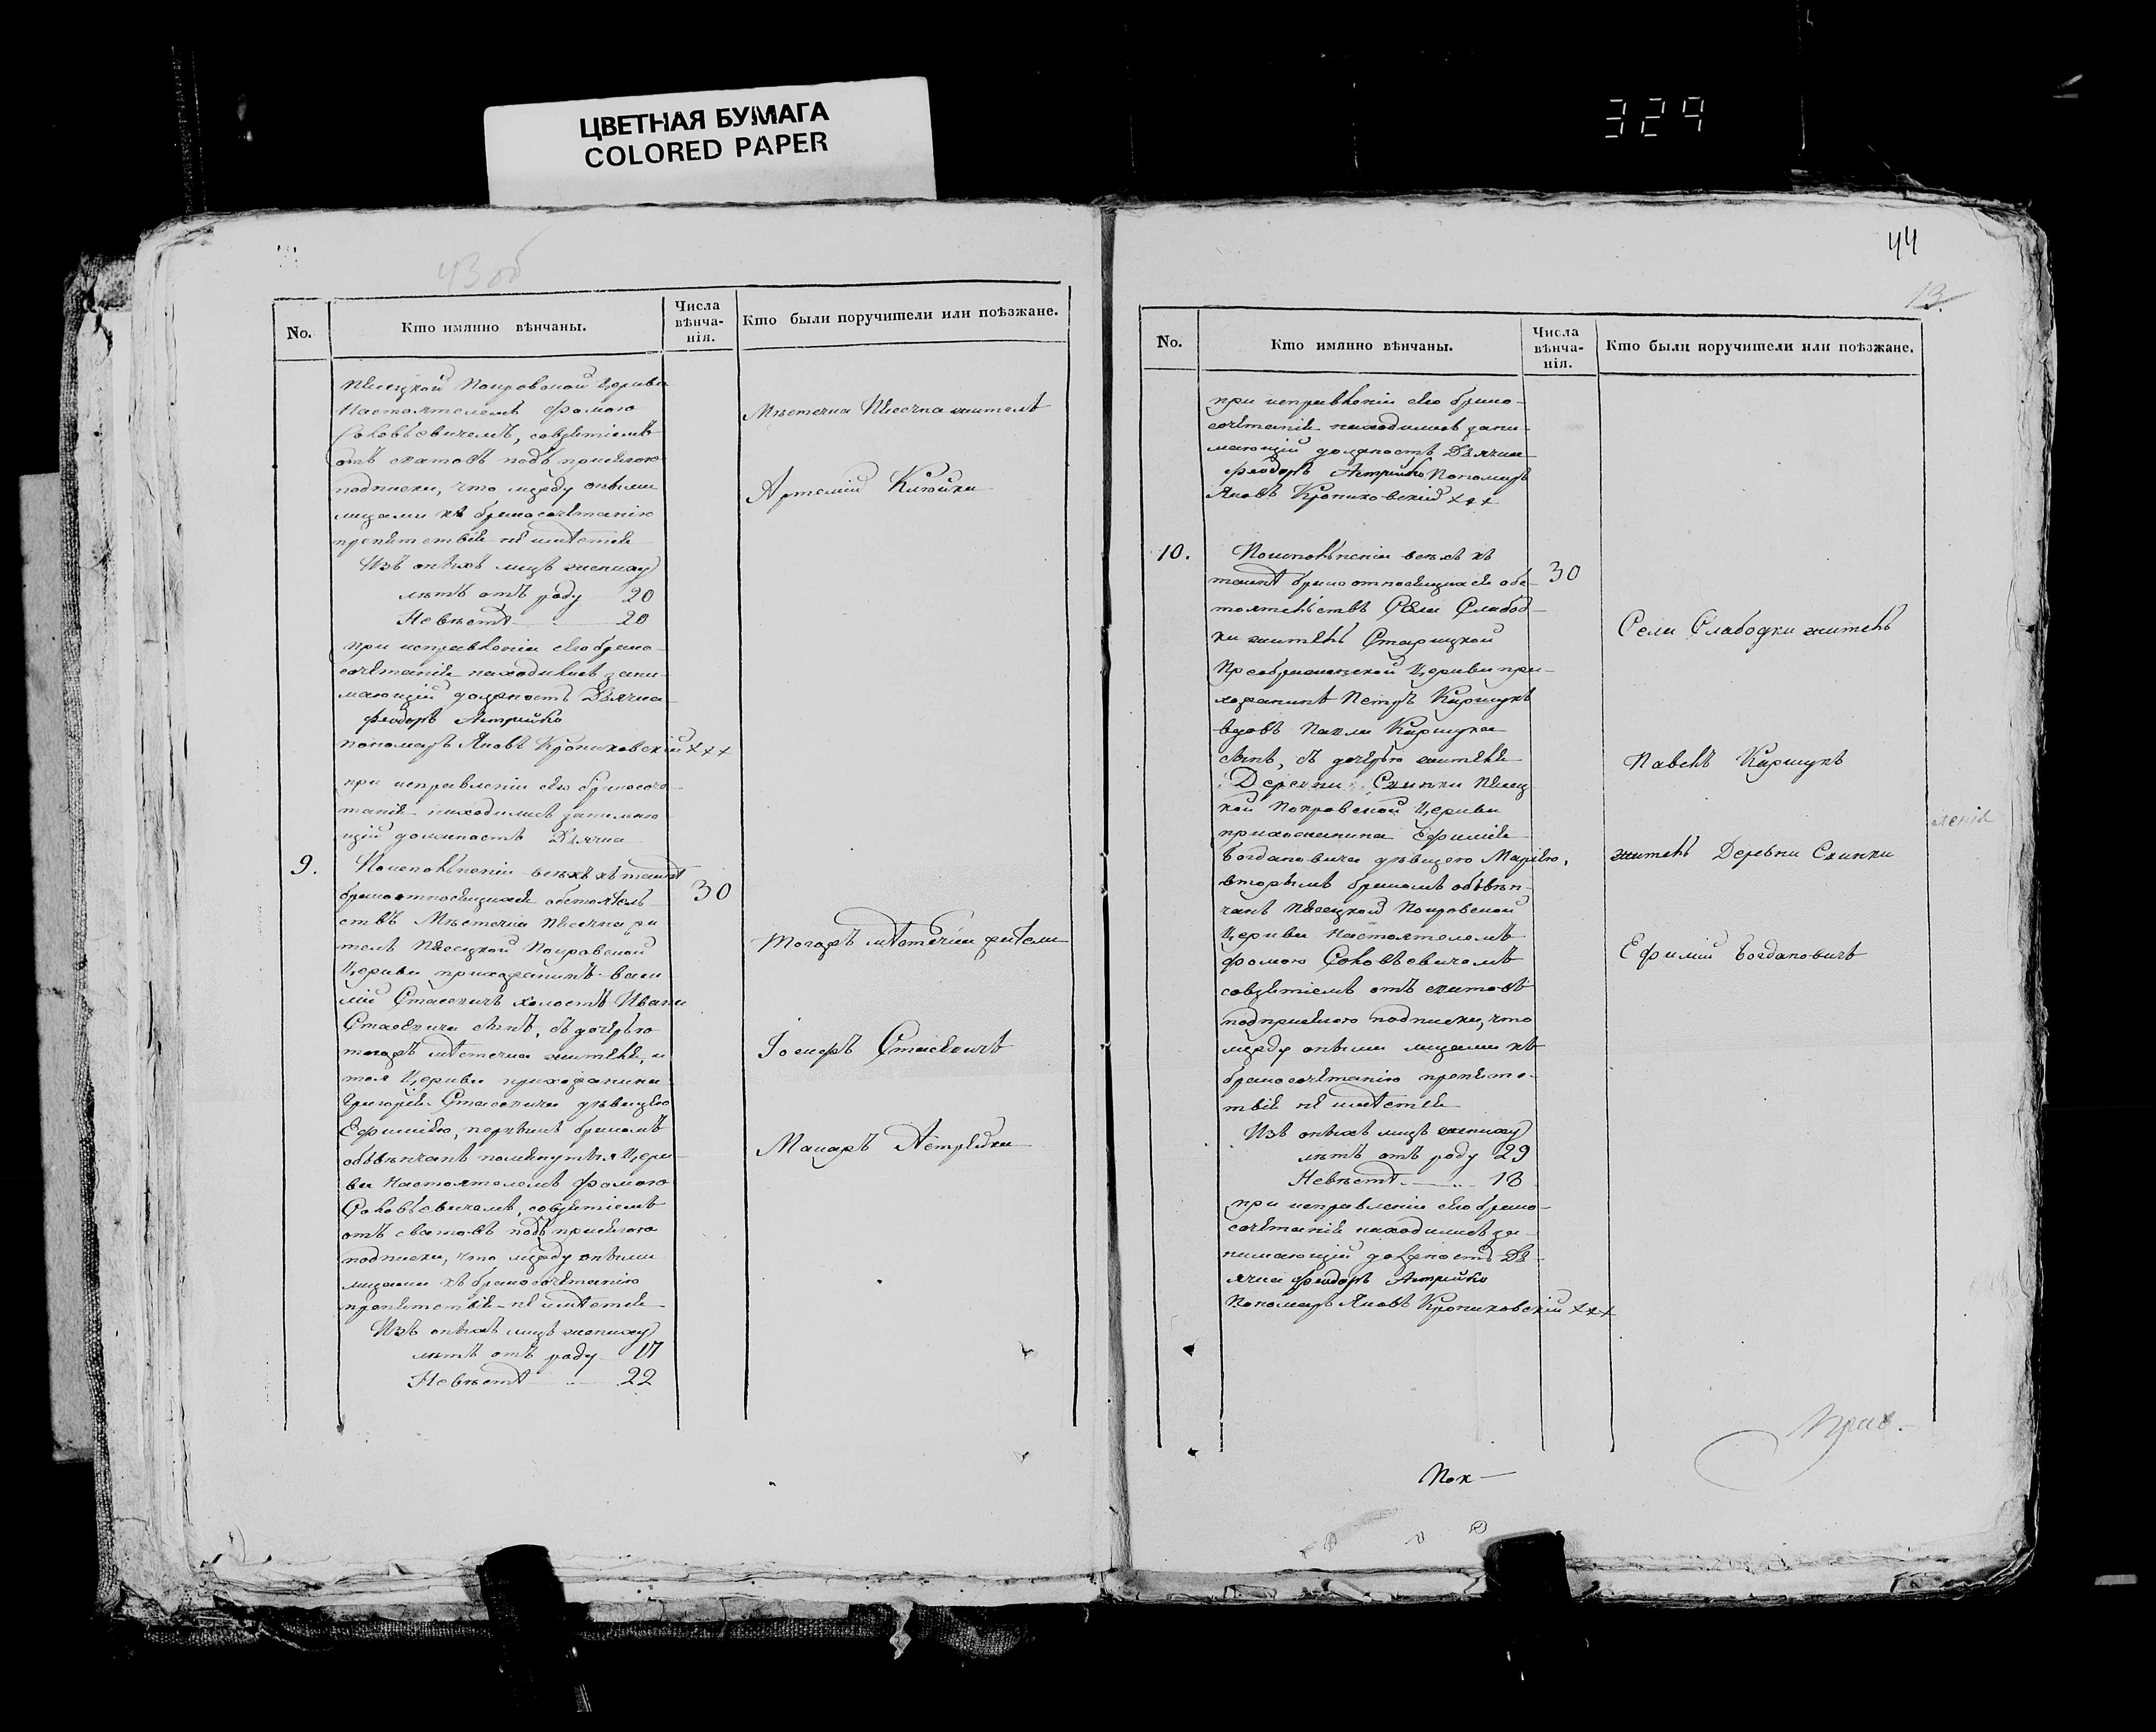 ЦВЕТНАЯ БУМАГА
COLORED PAPER
329
43 об
No.
Кто имянно вѣнчаны.
Числа
вѣнча-
нія.
Кто были поручители или поѣзжане.
Песецкой Покровской Церкви
Настоятелемъ Фомою
Соловьевичемъ, совзятіемъ
отъ сватовъ подъ присягою
подписки, что между оными
лицами къ бракосочетанію
препятствія не имѣется
Изъ оныхъ лицъ жениху
лѣтъ отъ роду 20
Невѣстѣ 20
при исправленіи сего брако-
сочетанія находились зани-
мающій должность Дьячка
Феодоръ
пономарь Яковъ Крониковскій +++
при исправленіи сего бракосоче-
танія находились занимаю
щій должность Дьячка
Мѣстечка Песечна жители
Артемій Клюйки
9.
Поисполненіи всѣхъ къ таинѣ
брака относящихся обстоятель-
ствъ Мѣстечка Песечна жи
тель Песецкой Покровской
Церкви прихожанинъ Васи
лій Стасевичъ холостъ Ивана
Стасевича сынъ, съ дочерью
тогожъ мѣстечка жителя, и
тоя Церкви прихожанина
Григорія Стасевича дѣвицею
Ефиміею, первымъ бракомъ
обвѣнчанъ помянутыя Церк
ви Настоятелемъ Фомою
Соловьевичемъ, совзятіемъ
отъ сватовъ подъ присягою
подписки, что между оными
лицами къ бракосочетанію
препятствія не имѣется
Изъ оныхъ лицъ жениху
лѣтъ отъ роду 17
Невѣстѣ 22
30
Тогожъ мѣстечка жители
Іосифъ Стасевичъ
Макаръ
44
13.
No.
Кто имянно вѣнчаны.
Числа
вѣнча-
нія.
Кто были поручители или поѣзжане.
при исправленіи сего брако-
сочетанія находились зани-
мающій должность Дьячка
Феодоръ Пономарь
Яковъ Крониковскій +++
10.
Поисполненіи всѣхъ къ
таинѣ брака относящихся обс-
тоятельствъ Села Слабод-
ки житель Старицкой
Преображенской Церкви при-
хожанинъ Петръ Каршукъ
вдовъ Павла Каршука
сынъ, съ дочерью жителя
Деревни Скинки Песец
кой Покровской Церкви
прихожанина Ефимія
Богдановича дѣвицею Маріею,
вторымъ бракомъ обвѣн-
чанъ Песецкой Покровской
Церкви Настоятелемъ
Фомою Соловьевичемъ
совзятіемъ отъ сватовъ
подприсягою подписки, что
между оными лицами къ
бракосочетанію препятс-
твія не имѣется
Изъ оныхъ лицъ жениху
лѣтъ отъ роду 29
Невѣстѣ 18
при исправленіи сего брако-
сочетанія находились за-
нимающій должность Дь-
ячка Феодоръ
Пономарь Яковъ Крониковскій +++
30
Села Слабодки житель
Павелъ Каршукъ
житель Деревни Скинки
Ефимій Богдановичъ
Пок